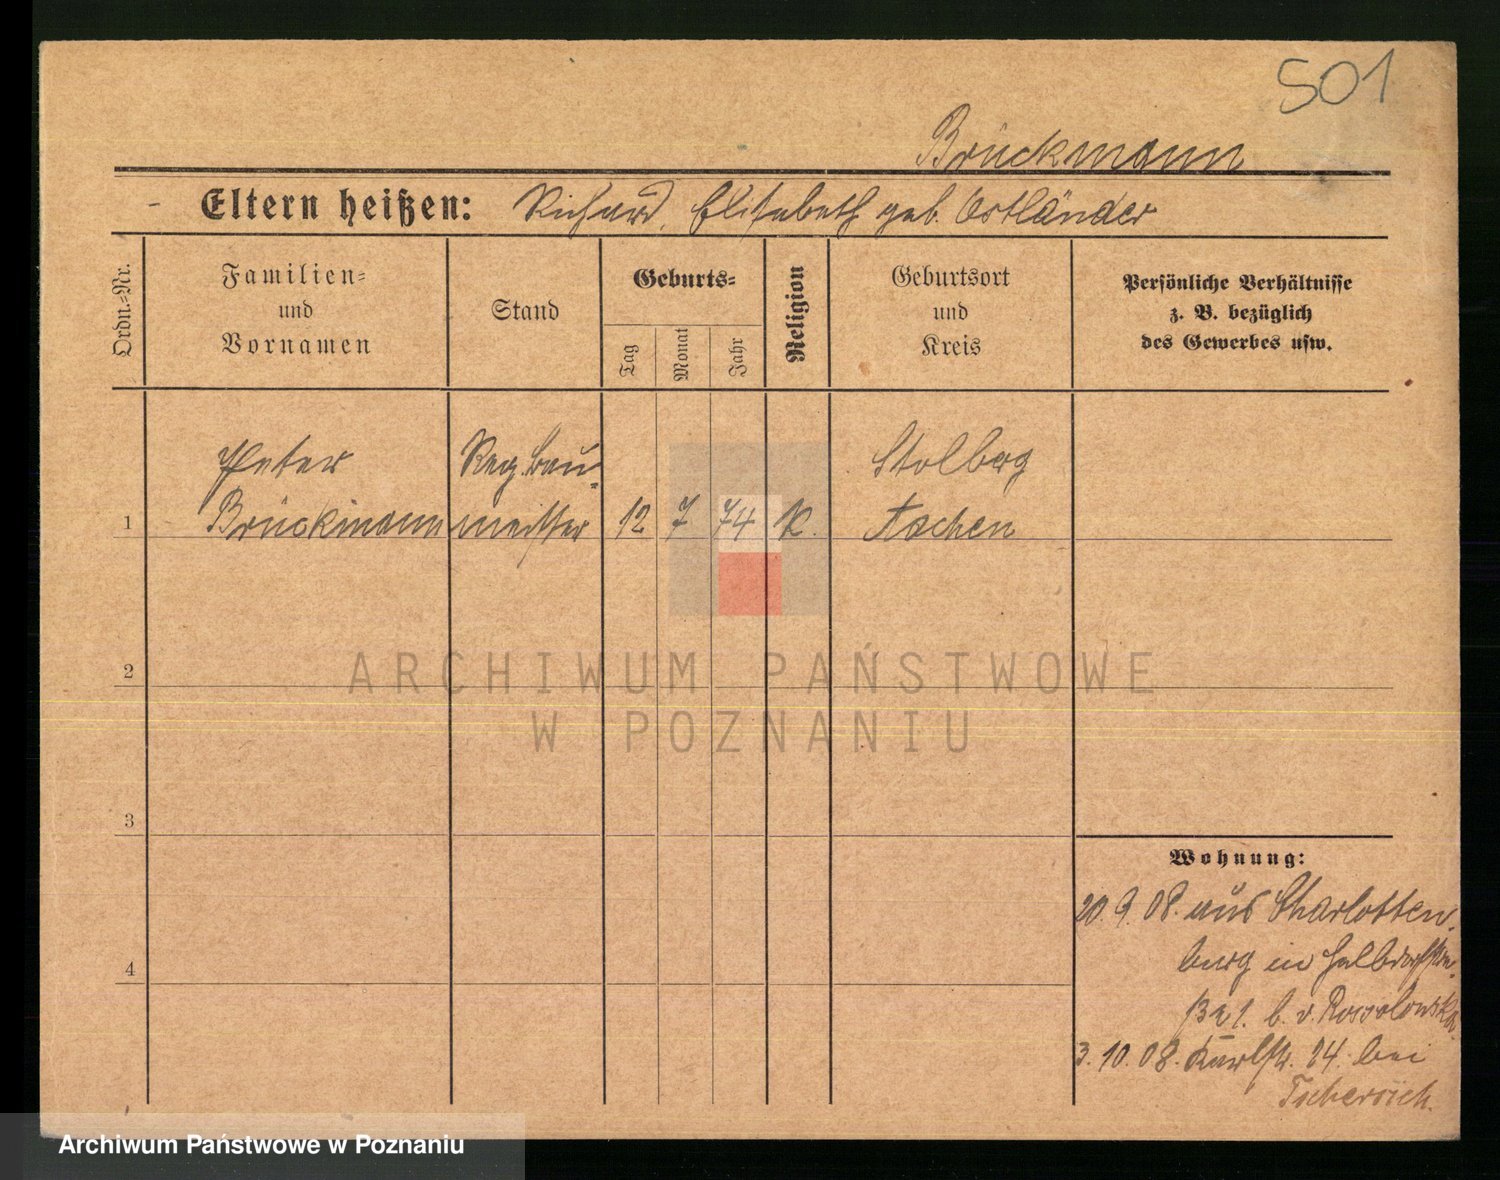 501
Brückmann
Eltern heißen: Richard, Elisabeth geb. Ostländer
Ordn.-Nr.
Familien-
und
Vornamen
Stand
Geburts-
Tag
Monat
Jahr
Religion
Geburtsort
und
Kreis
Persönliche Verhältnisse
z. B. bezüglich
des Gewerbes usw.
Peter Reg. bau- Stolberg
1 Brückmann meister 12 7 74 K. Aachen
2
ARCHIWUM PAŃSTWOWE
W POZNANIU
3
Wohnung:
20.9.08. aus Charlotten-
4
burg in
b. v.
3.10.08. Karlstr. 24. bei
Archiwum Państwowe w Poznaniu